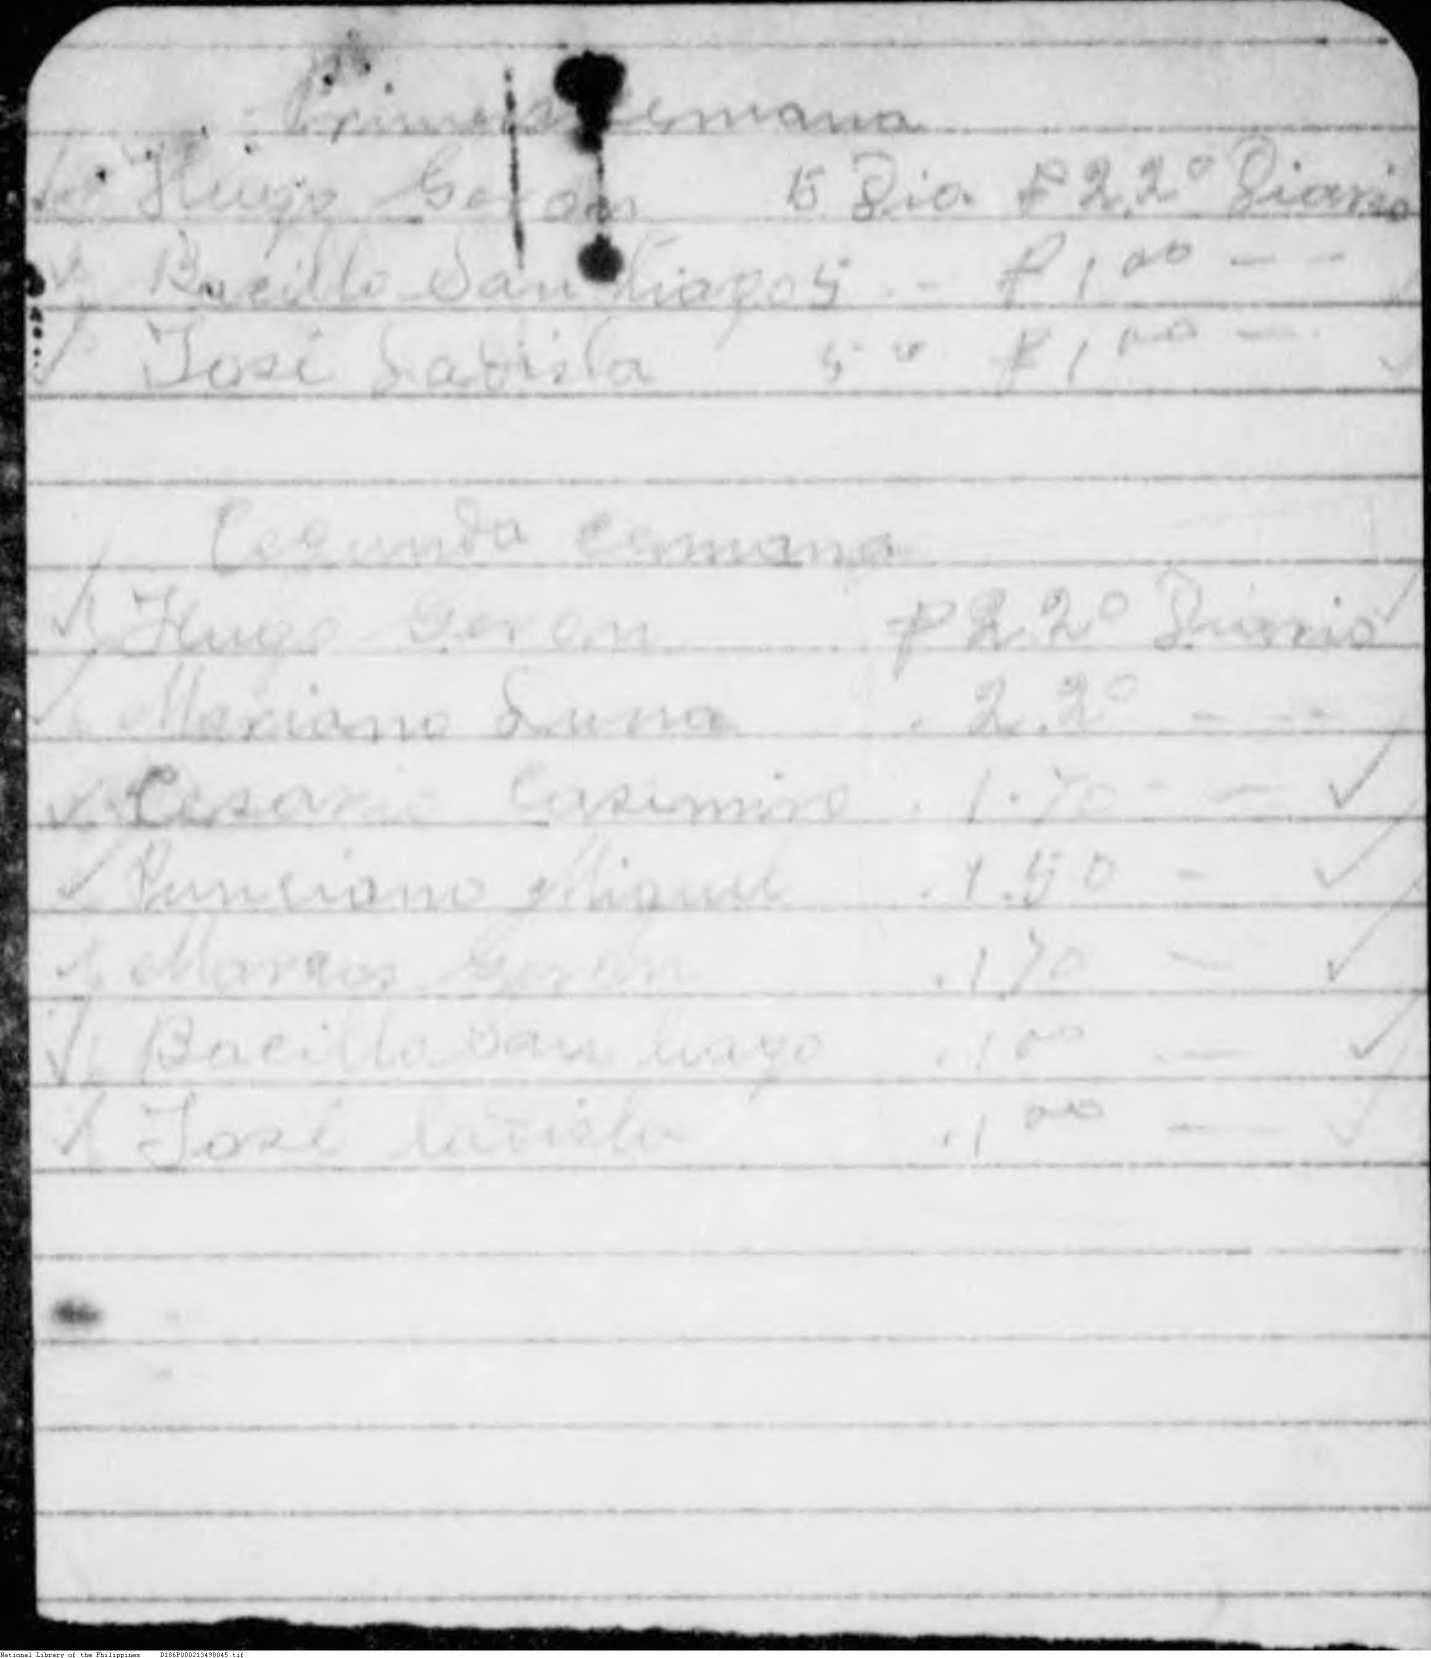 Primera Cemana
Hugo Geron 5 Dia ₱ 2.20 Diario
Bacillo Santiago 5 " ₱ 1.00 — —
José Latista 5 " ₱ 1.00 —
Cegunda Cemana
Hugo Geron ₱ 2.20 Diario
Mariano Luna . 2.20 — —
Cesario Casimiro . 1.70 - —
Punciano Miguel . 1.50 -
Marcos Geron . 1.70 —
Bacillo Santiago . 1.00 —
José Latista . 1.00 —
National Library of the Philippines D186P000213498045.tif